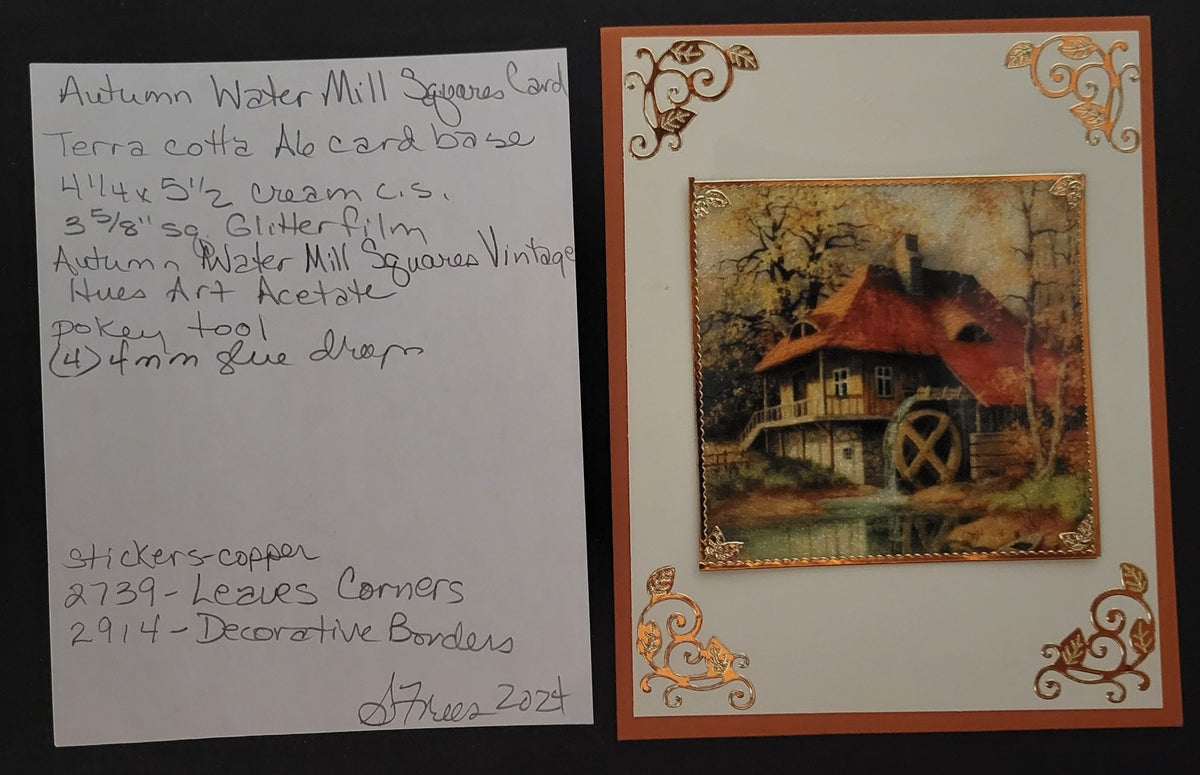 Autumn Water Mill Squares Card
Terra cotta A6 card base
4 1/4 x 5 1/2 cream c.s.
3 5/8" sq. Glitter film
Autumn Water Mill Squares Vintage
Hues Art Acetate
pokey tool
(4) 4mm glue drops
stickers-copper
2739-Leaves Corners
2914-Decorative Borders
2024